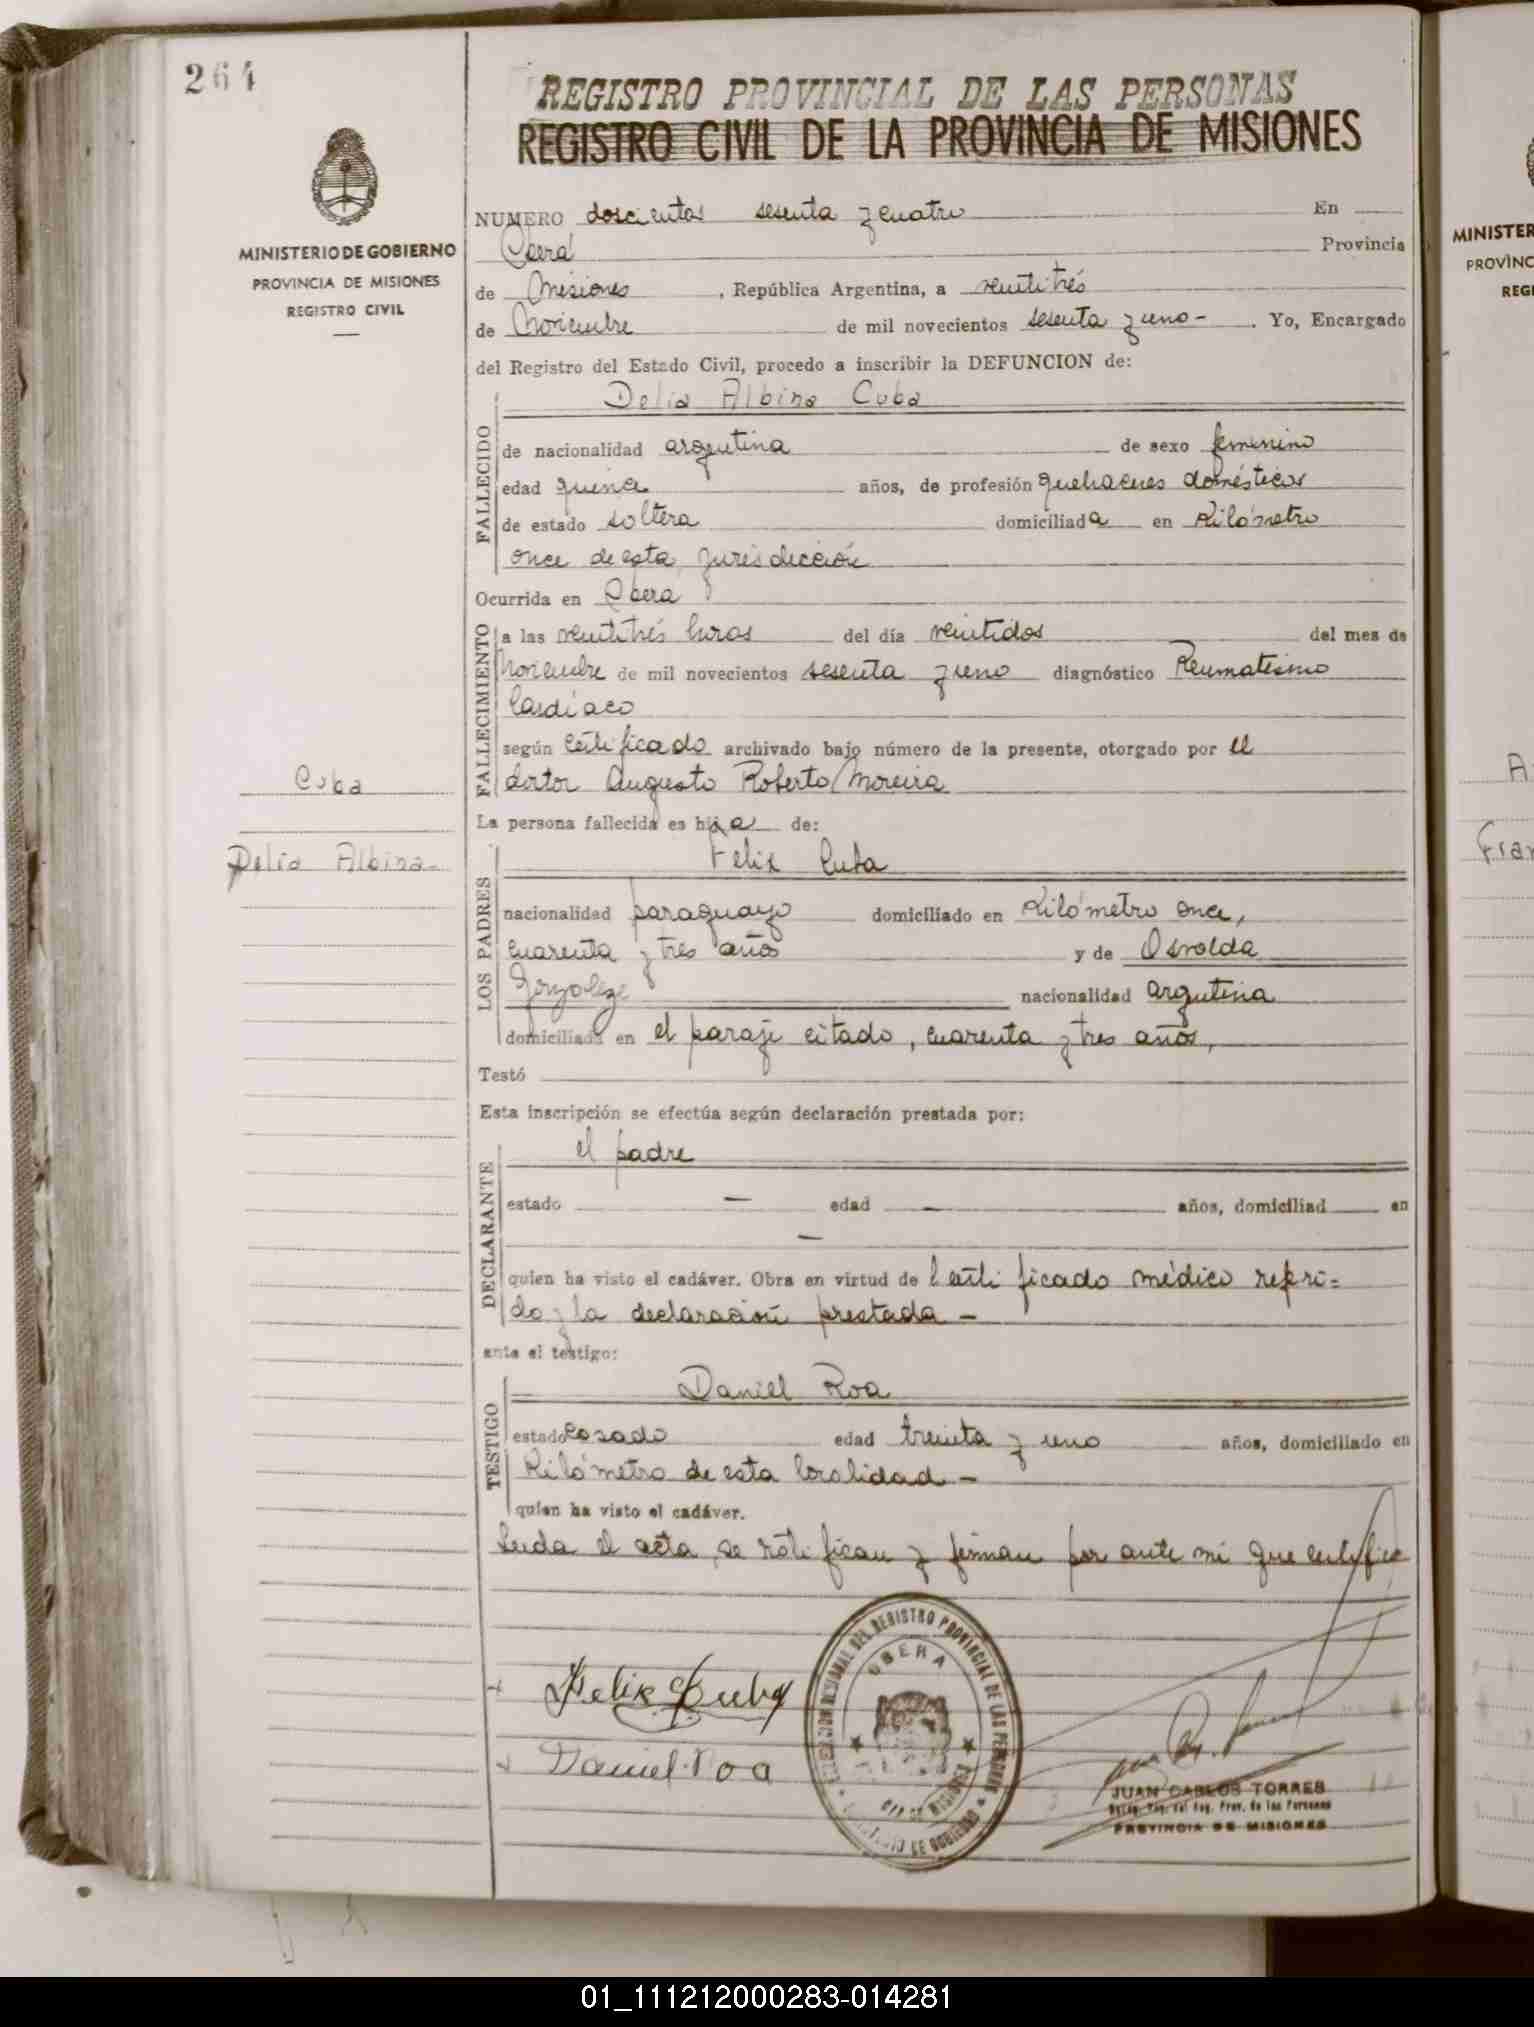 264
REGISTRO PROVINCIAL DE LAS PERSONAS
REGISTRO CIVIL DE LA PROVINCIA DE MISIONES
MINISTERIO DE GOBIERNO
PROVINCIA DE MISIONES
REGISTRO CIVIL
NUMERO doscientos sesenta y cuatro En
Oberá Provincia
de Misiones, República Argentina, a veintitrés
de Noviembre de mil novecientos sesenta y uno-. Yo, Encargado
del Registro del Estado Civil, procedo a inscribir la DEFUNCION de:
Delia Albina Cuba
FALLECIDO
de nacionalidad argentina de sexo femenino
edad años, de profesión quehaceres domésticos
de estado soltera domiciliada en Kilómetro
once de esta jurisdicción
Ocurrida en Oberá
FALLECIMIENTO
a las veintitrés horas del día veintidos del mes de
Noviembre de mil novecientos sesenta y uno diagnóstico Reumatismo
Cardíaco
según certificado archivado bajo número de la presente, otorgado por el
doctor Augusto Roberto Moreira
Cuba
Delia Albina-
La persona fallecida es hija de:
Felix Cuba
LOS PADRES
nacionalidad paraguayo domiciliado en Kilómetro once,
cuarenta y tres años y de Osvalda
Gonzalez nacionalidad argentina
domiciliada en el paraje citado, cuarenta y tres años,
Testó
Esta inscripción se efectúa según declaración prestada por:
el padre
DECLARANTE
estado — edad — años, domiciliad en
—
quien ha visto el cadáver. Obra en virtud de Certificado médico referi=
do y la declaración prestada -
ante el testigo:
Daniel Roa
TESTIGO
estado casado edad treinta y uno años, domiciliado en
Kilómetro de esta localidad -
quien ha visto el cadáver.
Leida el acta, se ratifican y firman por ante mi que certifico
Felix Cuba
Daniel Roa
DELEGACION REGIONAL DEL REGISTRO PROVINCIAL DE LAS PERSONAS
OBERA
MINISTERIO DE GOBIERNO
JUAN CARLOS TORRES
Prov. de las Personas
PROVINCIA DE MISIONES
MINISTER
PROVINC
REGI
A
Fran
01_111212000283-014281